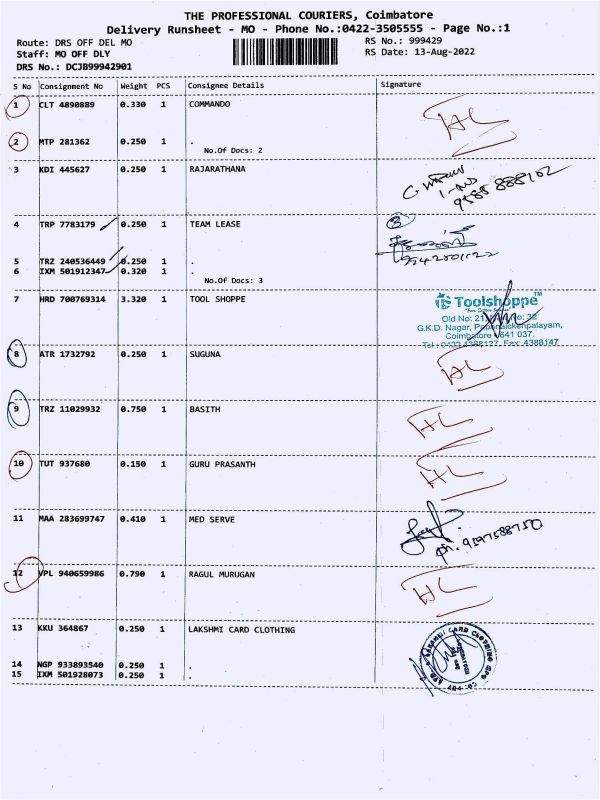 THE PROFESSIONAL COURIERS, Coimbatore
Delivery Runsheet - MO - Phone No.:0422-3505555 - Page No.:1
Route: DRS OFF DEL MO RS No.: 999429
Staff: MO OFF DLY RS Date: 13-Aug-2022
DRS No.: DCJB99942901
S No Consignment No Weight PCS Consignee Details Signature
1 CLT 4890889 0.330 1 COMMANDO
2 MTP 281362 0.250 1 .
No.Of Docs: 2
3 KDI 445627 0.250 1 RAJARATHANA
4 TRP 7783179 0.250 1 TEAM LEASE
5 TRZ 240536449 0.250 1 .
6 IXM 501912347 0.320 1 .
No.Of Docs: 3
7 HRD 700769314 3.320 1 TOOL SHOPPE
Toolshoppe™
Old No: 21, No: 32
G.K.D. Nagar, Papanaickenpalayam,
Coimbatore 641 037.
Tel: Fax: 4388147
8 ATR 1732792 0.250 1 SUGUNA
9 TRZ 11029932 0.750 1 BASITH
10 TUT 937680 0.150 1 GURU PRASANTH
11 MAA 283699747 0.410 1 MED SERVE
12 VPL 940659986 0.790 1 RAGUL MURUGAN
13 KKU 364867 0.250 1 LAKSHMI CARD CLOTHING
14 NGP 933893540 0.250 1 .
15 IXM 501928073 0.250 1 .